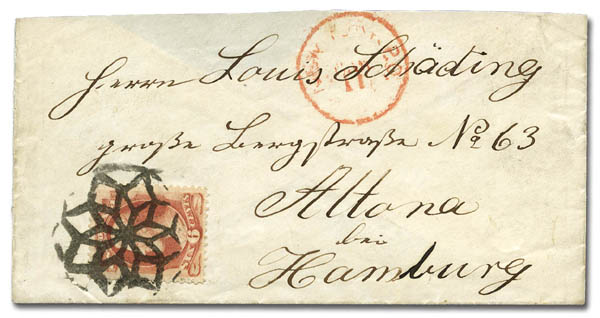 Herrn Louis Schäding
große Bergstraße No 63
Altona
bei
Hamburg
NEW YORK
11